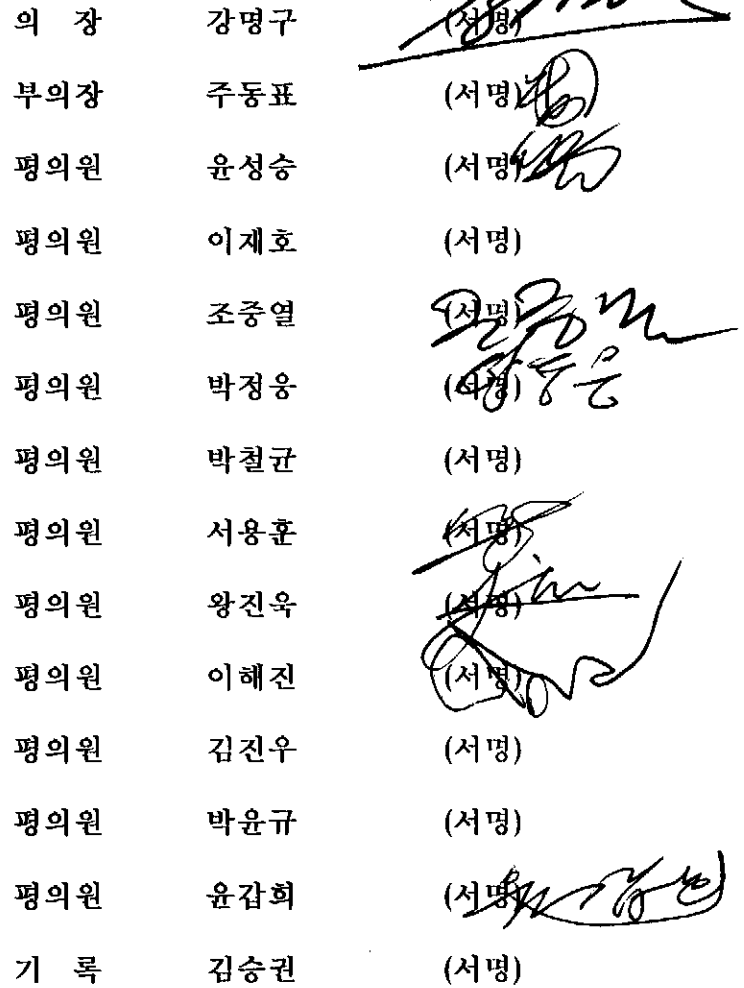 의 장 강명구 (서명)
부의장 주동표 (서명)
평의원 윤성승 (서명)
평의원 이재호 (서명)
평의원 조중열 (서명)
평의원 박정웅 (서명)
평의원 박철균 (서명)
평의원 서용훈 (서명)
평의원 왕진욱 (서명)
평의원 이해진 (서명)
평의원 김진우 (서명)
평의원 박윤규 (서명)
평의원 윤갑희 (서명)
기 록 김승권 (서명)